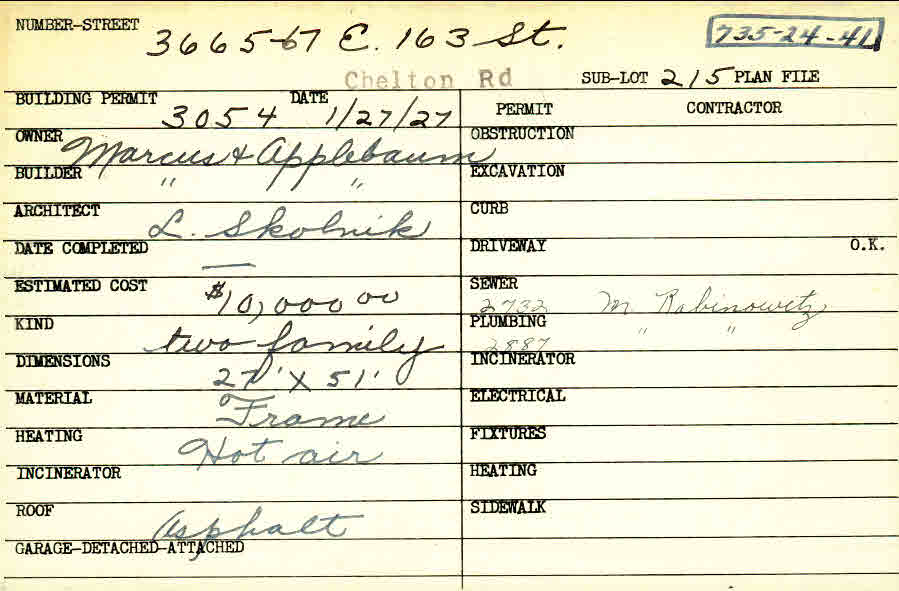 NUMBER-STREET 3665-67 E. 163 St. 735-24-41
Chelton Rd SUB-LOT 215 PLAN FILE
BUILDING PERMIT 3054 DATE 1/27/27 PERMIT CONTRACTOR
OWNER Marcus & Applebaum OBSTRUCTION
BUILDER " " EXCAVATION
ARCHITECT L. Skolnik CURB
DATE COMPLETED — DRIVEWAY O.K.
ESTIMATED COST $10,000 00 SEWER 2732 M. Rabinowitz
KIND two family PLUMBING 2887 " "
DIMENSIONS 27' X 51' INCINERATOR
MATERIAL Frame ELECTRICAL
HEATING Hot air FIXTURES
INCINERATOR HEATING
ROOF Asphalt SIDEWALK
GARAGE-DETACHED-ATTACHED